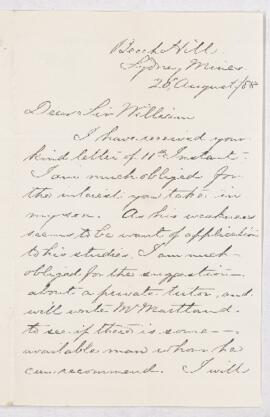 Beech Hill
Sydney Mines
26 August/88
Dear Sir William
I have received your
kind letter of 11th Instant.
I am much obliged for
the interest you take in
my son. As his weakness
seems to be want of application
to his studies. I am much
obliged for the suggestion
about a private tutor, and
will write Mr Maitland
to see if there is some
available man whom he
can recommend. I will